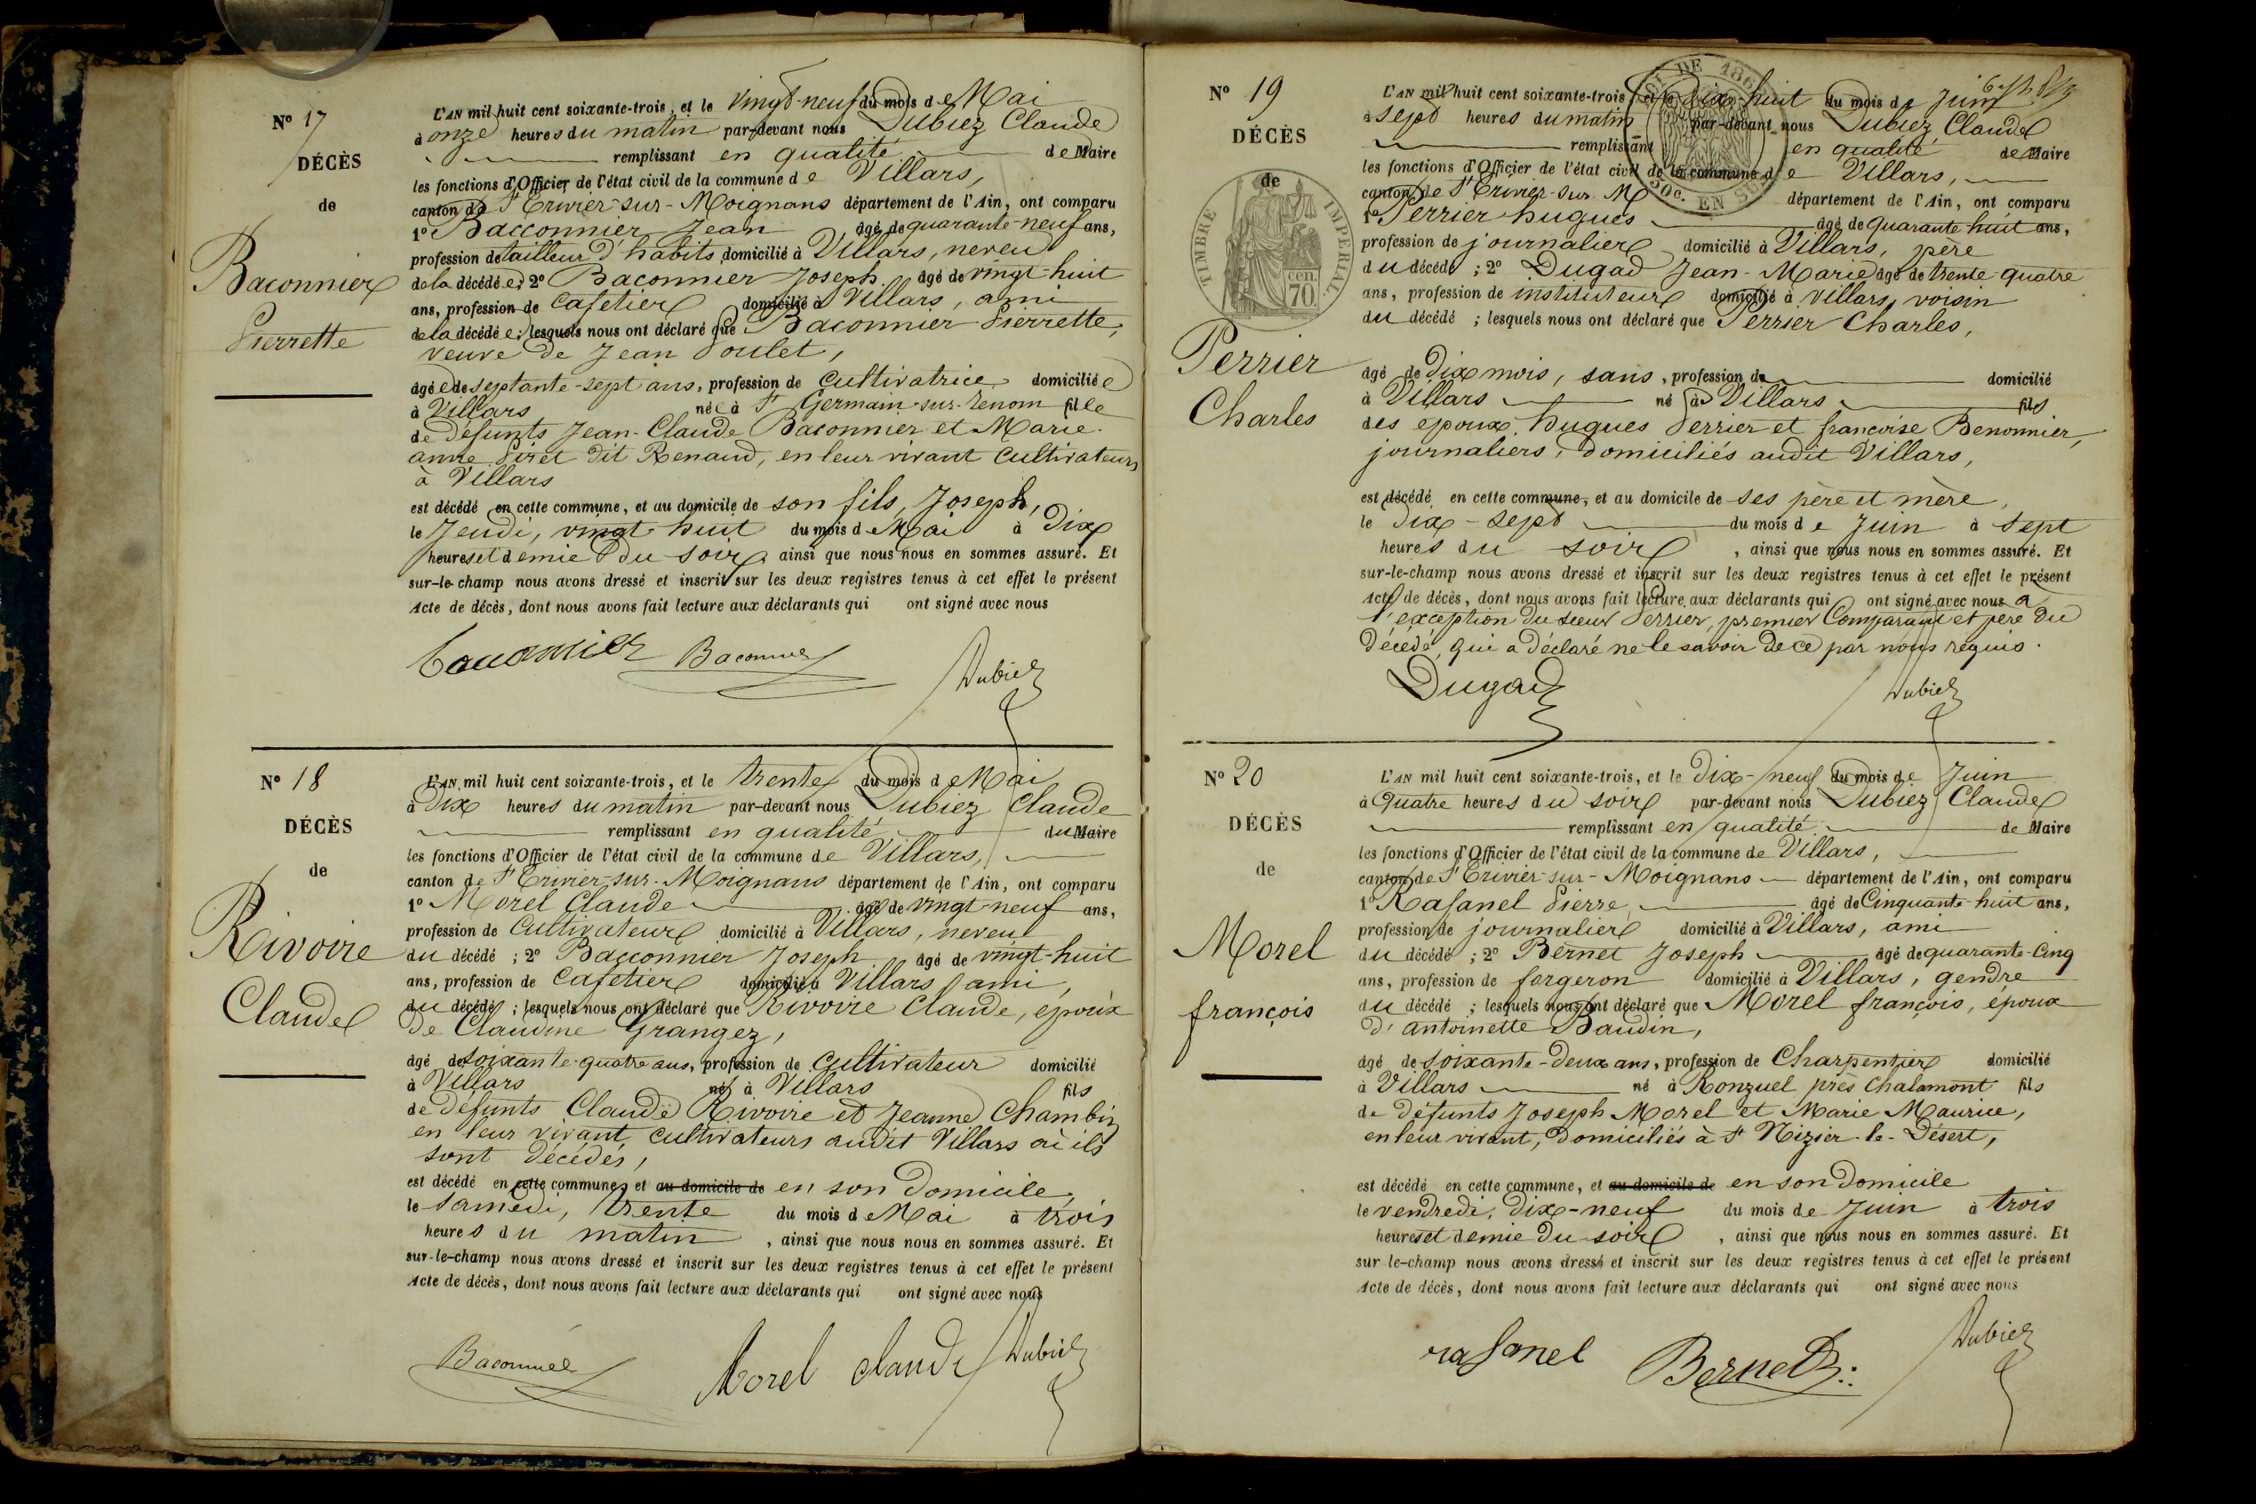 N° 17
DÉCÈS
de
Baconnier
Pierrette
L'AN mil huit cent soixante-trois, et le vingt-neuf du mois de Mai
à onze heures du matin par-devant nous Dubiez Claude
remplissant en qualité de Maire
les fonctions d'Officier de l'état civil de la commune de Villars,
canton de St Trivier-sur-Moignans département de l'Ain, ont comparu
1° Bacconnier Jean âgé de quarante-neuf ans,
profession de tailleur d'habits domicilié à Villars, neveu
de la décédée; 2° Baconnier Joseph âgé de vingt-huit
ans, profession de Cafetier domicilié à Villars, ami
de la décédée; lesquels nous ont déclaré que Baconnier Pierrette,
veuve de Jean Poulet,
âgée de septante-sept ans, profession de Cultivatrice domiciliée
à Villars née à St Germain-sur-Renom fille
de défunts Jean-Claude Baconnier et Marie-
anne Piret dit Renaud, en leur vivant Cultivateurs
à Villars
est décédé en cette commune, et au domicile de son fils, Joseph,
le Jeudi, vingt-huit du mois de Mai à Dix
heures et demie du soir, ainsi que nous nous en sommes assuré. Et
sur-le-champ nous avons dressé et inscrit sur les deux registres tenus à cet effet le présent
Acte de décès, dont nous avons fait lecture aux déclarants qui ont signé avec nous
Baconnier Dubiez
N° 18
DÉCÈS
de
Rivoire
Claude
L'AN mil huit cent soixante-trois, et le trente du mois de Mai
à Dix heures du matin par-devant nous Dubiez Claude
remplissant en qualité du Maire
les fonctions d'Officier de l'état civil de la commune de Villars,
canton de St Trivier-sur-Moignans département de l'Ain, ont comparu
1° Morel Claude âgé de vingt-neuf ans,
profession de Cultivateur domicilié à Villars, neveu
du décédé; 2° Bacconnier Joseph âgé de vingt-huit
ans, profession de Cafetier domicilié à Villars ami,
du décédé; lesquels nous ont déclaré que Rivoire Claude, époux
de Claudine Grangez,
âgé de soixante-quatre ans, profession de Cultivateur domicilié
à Villars né à Villars fils
de défunts Claude Rivoire et Jeanne Chambiz
en leur vivant Cultivateurs audit Villars où ils
sont décédés,
est décédé en cette commune, et au domicile de en son Domicile,
le Samedi, trente du mois de Mai à trois
heures du matin, ainsi que nous nous en sommes assuré. Et
sur-le-champ nous avons dressé et inscrit sur les deux registres tenus à cet effet le présent
Acte de décès, dont nous avons fait lecture aux déclarants qui ont signé avec nous
Baconnier Morel claude Dubiez
N° 19
DÉCÈS
de
TIMBRE IMPÉRIAL
70 cen.
Perrier
Charles
50c. EN SUS
L'AN mil huit cent soixante-trois, et le Dix-huit du mois de Juin
à sept heures du matin par-devant nous Dubiez Claude
remplissant en qualité de Maire
les fonctions d'Officier de l'état civil de la commune de Villars,
canton de St Trivier-sur-M département de l'Ain, ont comparu
1° Perrier hugues âgé de quarante-huit ans,
profession de journalier domicilié à Villars, père
du décédé; 2° Dugad Jean-Marie âgé de trente-quatre
ans, profession de instituteur domicilié à Villars, voisin
du décédé; lesquels nous ont déclaré que Perrier Charles,
âgé de Dix mois, sans, profession de domicilié
à Villars né à Villars fils
des époux hugues Perrier et françoise Benonnier,
journaliers, domiciliés audit Villars,
est décédé en cette commune, et au domicile de ses père et mère,
le Dix-sept du mois de Juin à Sept
heures du soir, ainsi que nous nous en sommes assuré. Et
sur-le-champ nous avons dressé et inscrit sur les deux registres tenus à cet effet le présent
Acte de décès, dont nous avons fait lecture aux déclarants qui ont signé avec nous à
l'exception du sieur Perrier, premier Comparant et père du
décédé, qui a déclaré ne le savoir de ce par nous requis.
Dugad Dubiez
N° 20
DÉCÈS
de
Morel
françois
L'AN mil huit cent soixante-trois, et le Dix-neuf du mois de Juin
à quatre heures du soir par-devant nous Dubiez Claude
remplissant en qualité de Maire
les fonctions d'Officier de l'état civil de la commune de Villars,
canton de St Trivier-sur-Moignans département de l'Ain, ont comparu
1° Rafanel Pierre âgé de Cinquante-huit ans,
profession de journalier domicilié à Villars, ami
du décédé; 2° Bernet Joseph âgé de quarante-Cinq
ans, profession de forgeron domicilié à Villars, gendre
du décédé; lesquels nous ont déclaré que Morel françois, époux
d'antoinette Baudin,
âgé de soixante-deux ans, profession de Charpentier domicilié
à Villars né à Ronzuel près Chalamont fils
de défunts Joseph Morel et Marie Maurice,
en leur vivant, Domiciliés à St Nizier-le-Désert,
est décédé en cette commune, et au domicile de en son Domicile
le vendredi, dix-neuf du mois de Juin à trois
heures et demie du soir, ainsi que nous nous en sommes assuré. Et
sur-le-champ nous avons dressé et inscrit sur les deux registres tenus à cet effet le présent
Acte de décès, dont nous avons fait lecture aux déclarants qui ont signé avec nous
rafanel Bernet Dubiez